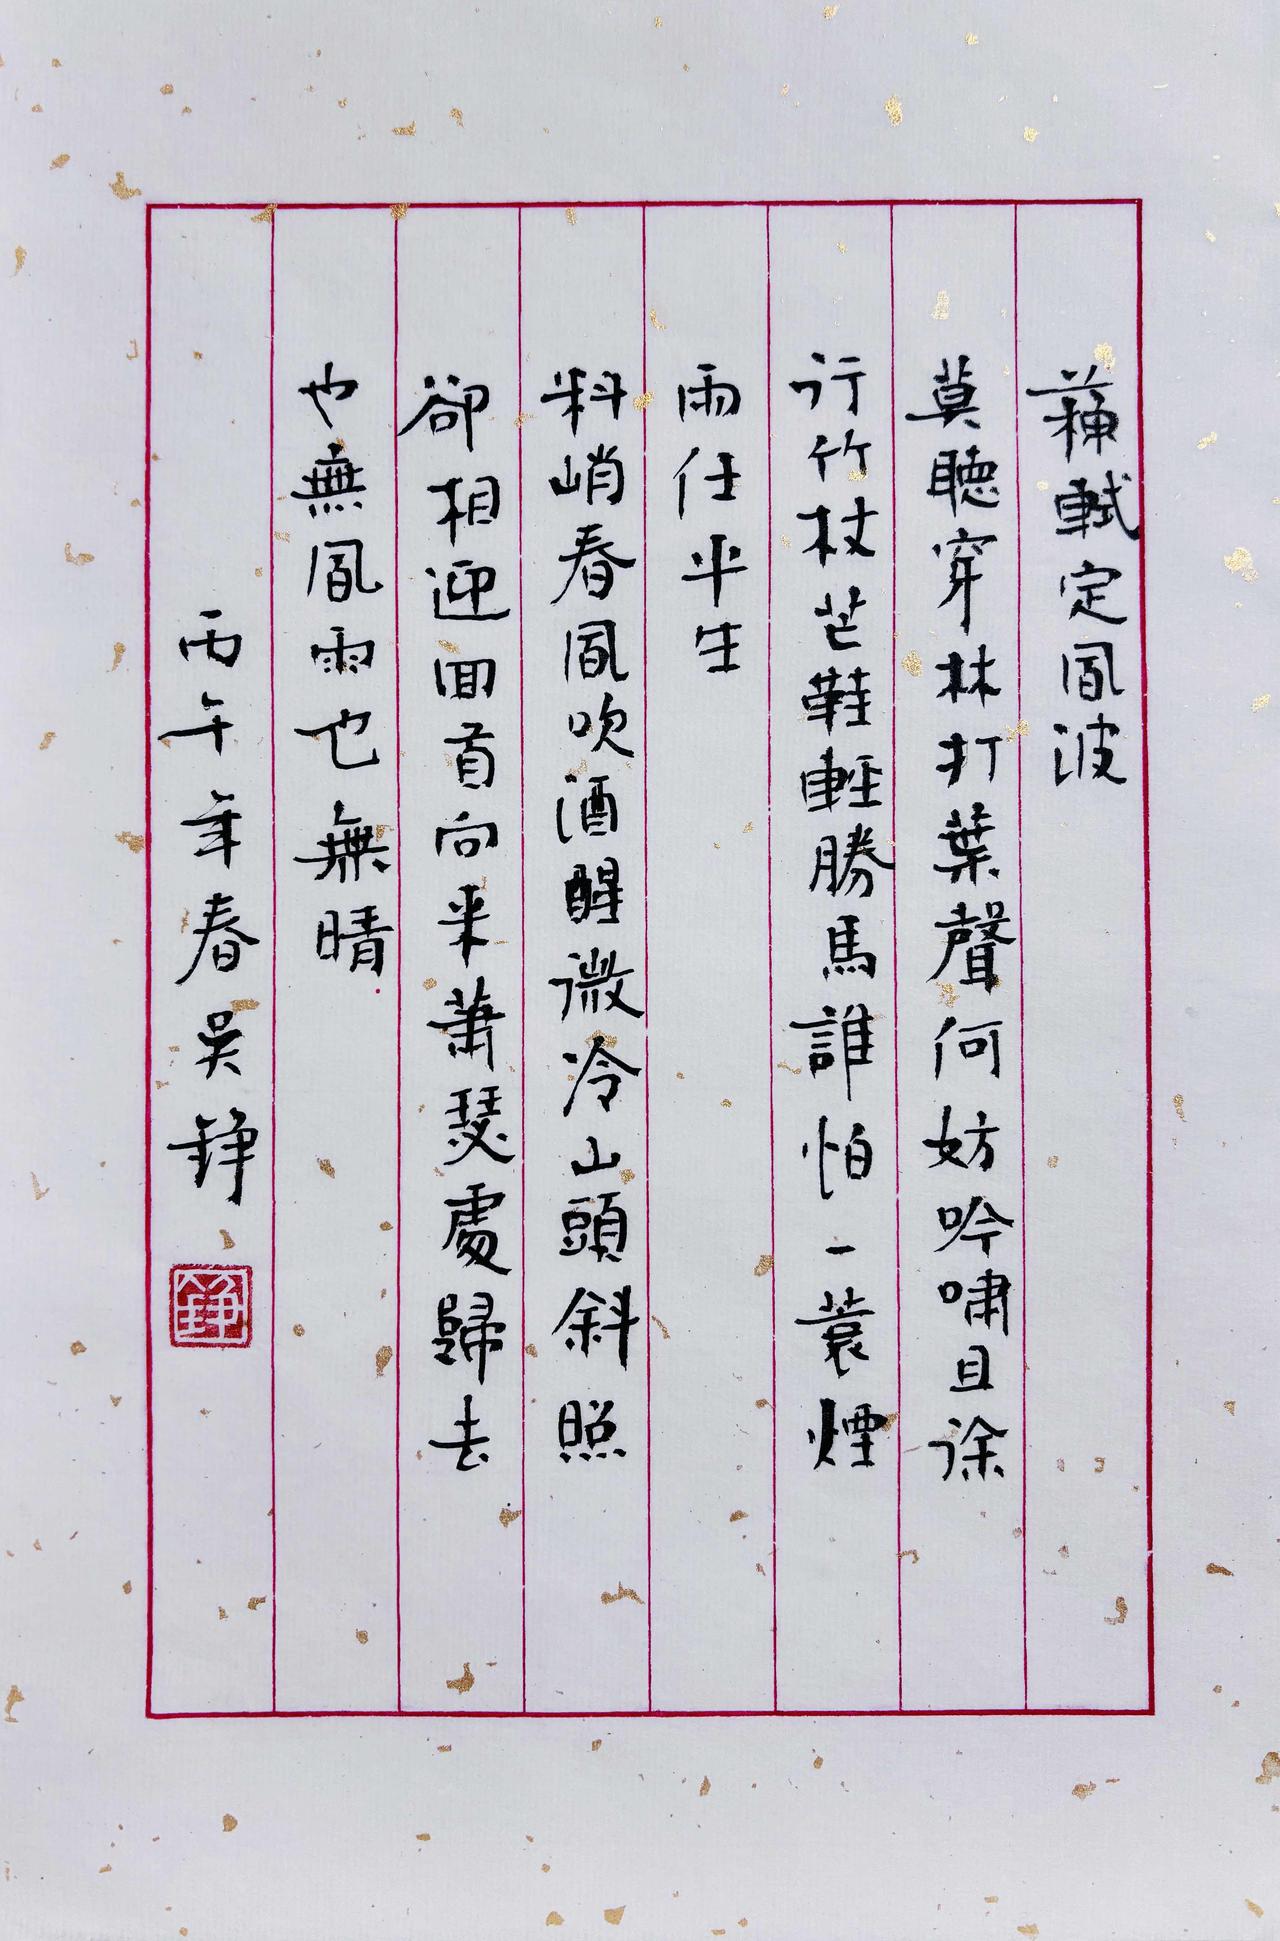 蘇軾定風波
莫聽穿林打葉聲何妨吟嘯且徐
行竹杖芒鞋輕勝馬誰怕一蓑煙
雨任平生
料峭春風吹酒醒微冷山頭斜照
卻相迎回首向来蕭瑟處歸去
也無風雨也無晴
丙午年春吳錚
錚